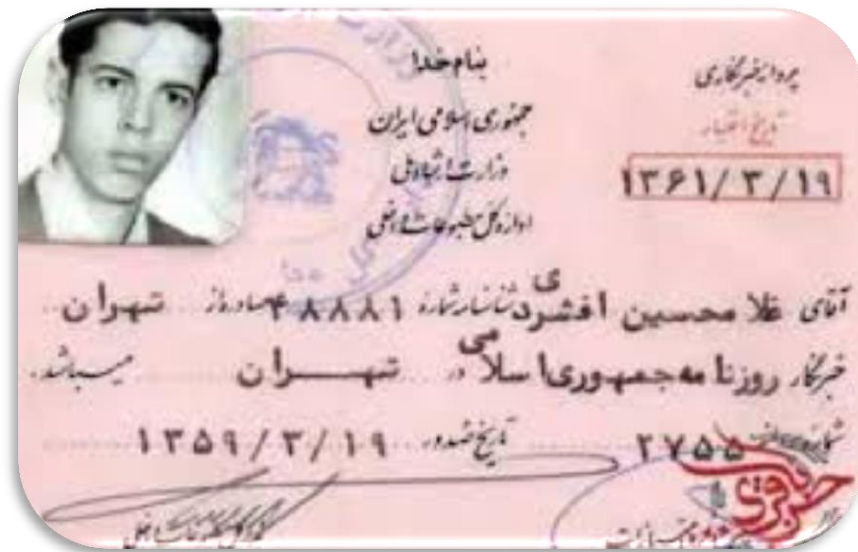 بنام خدا
جمهوری اسلامی ایران
وزارت ارشاد ملی
اداره کل مطبوعات داخلی
پروانه خبرنگاری
تاریخ اعتبار
۱۳۶۱/۳/۱۹
آقای غلامحسین افشردی شناسنامه شماره ۴۸۸۸۱ صادره از تهران
خبرنگار روزنامه جمهوری اسلامی در تهران میباشد.
۲۷۵۵ تاریخ صدور ۱۳۵۹/۳/۱۹